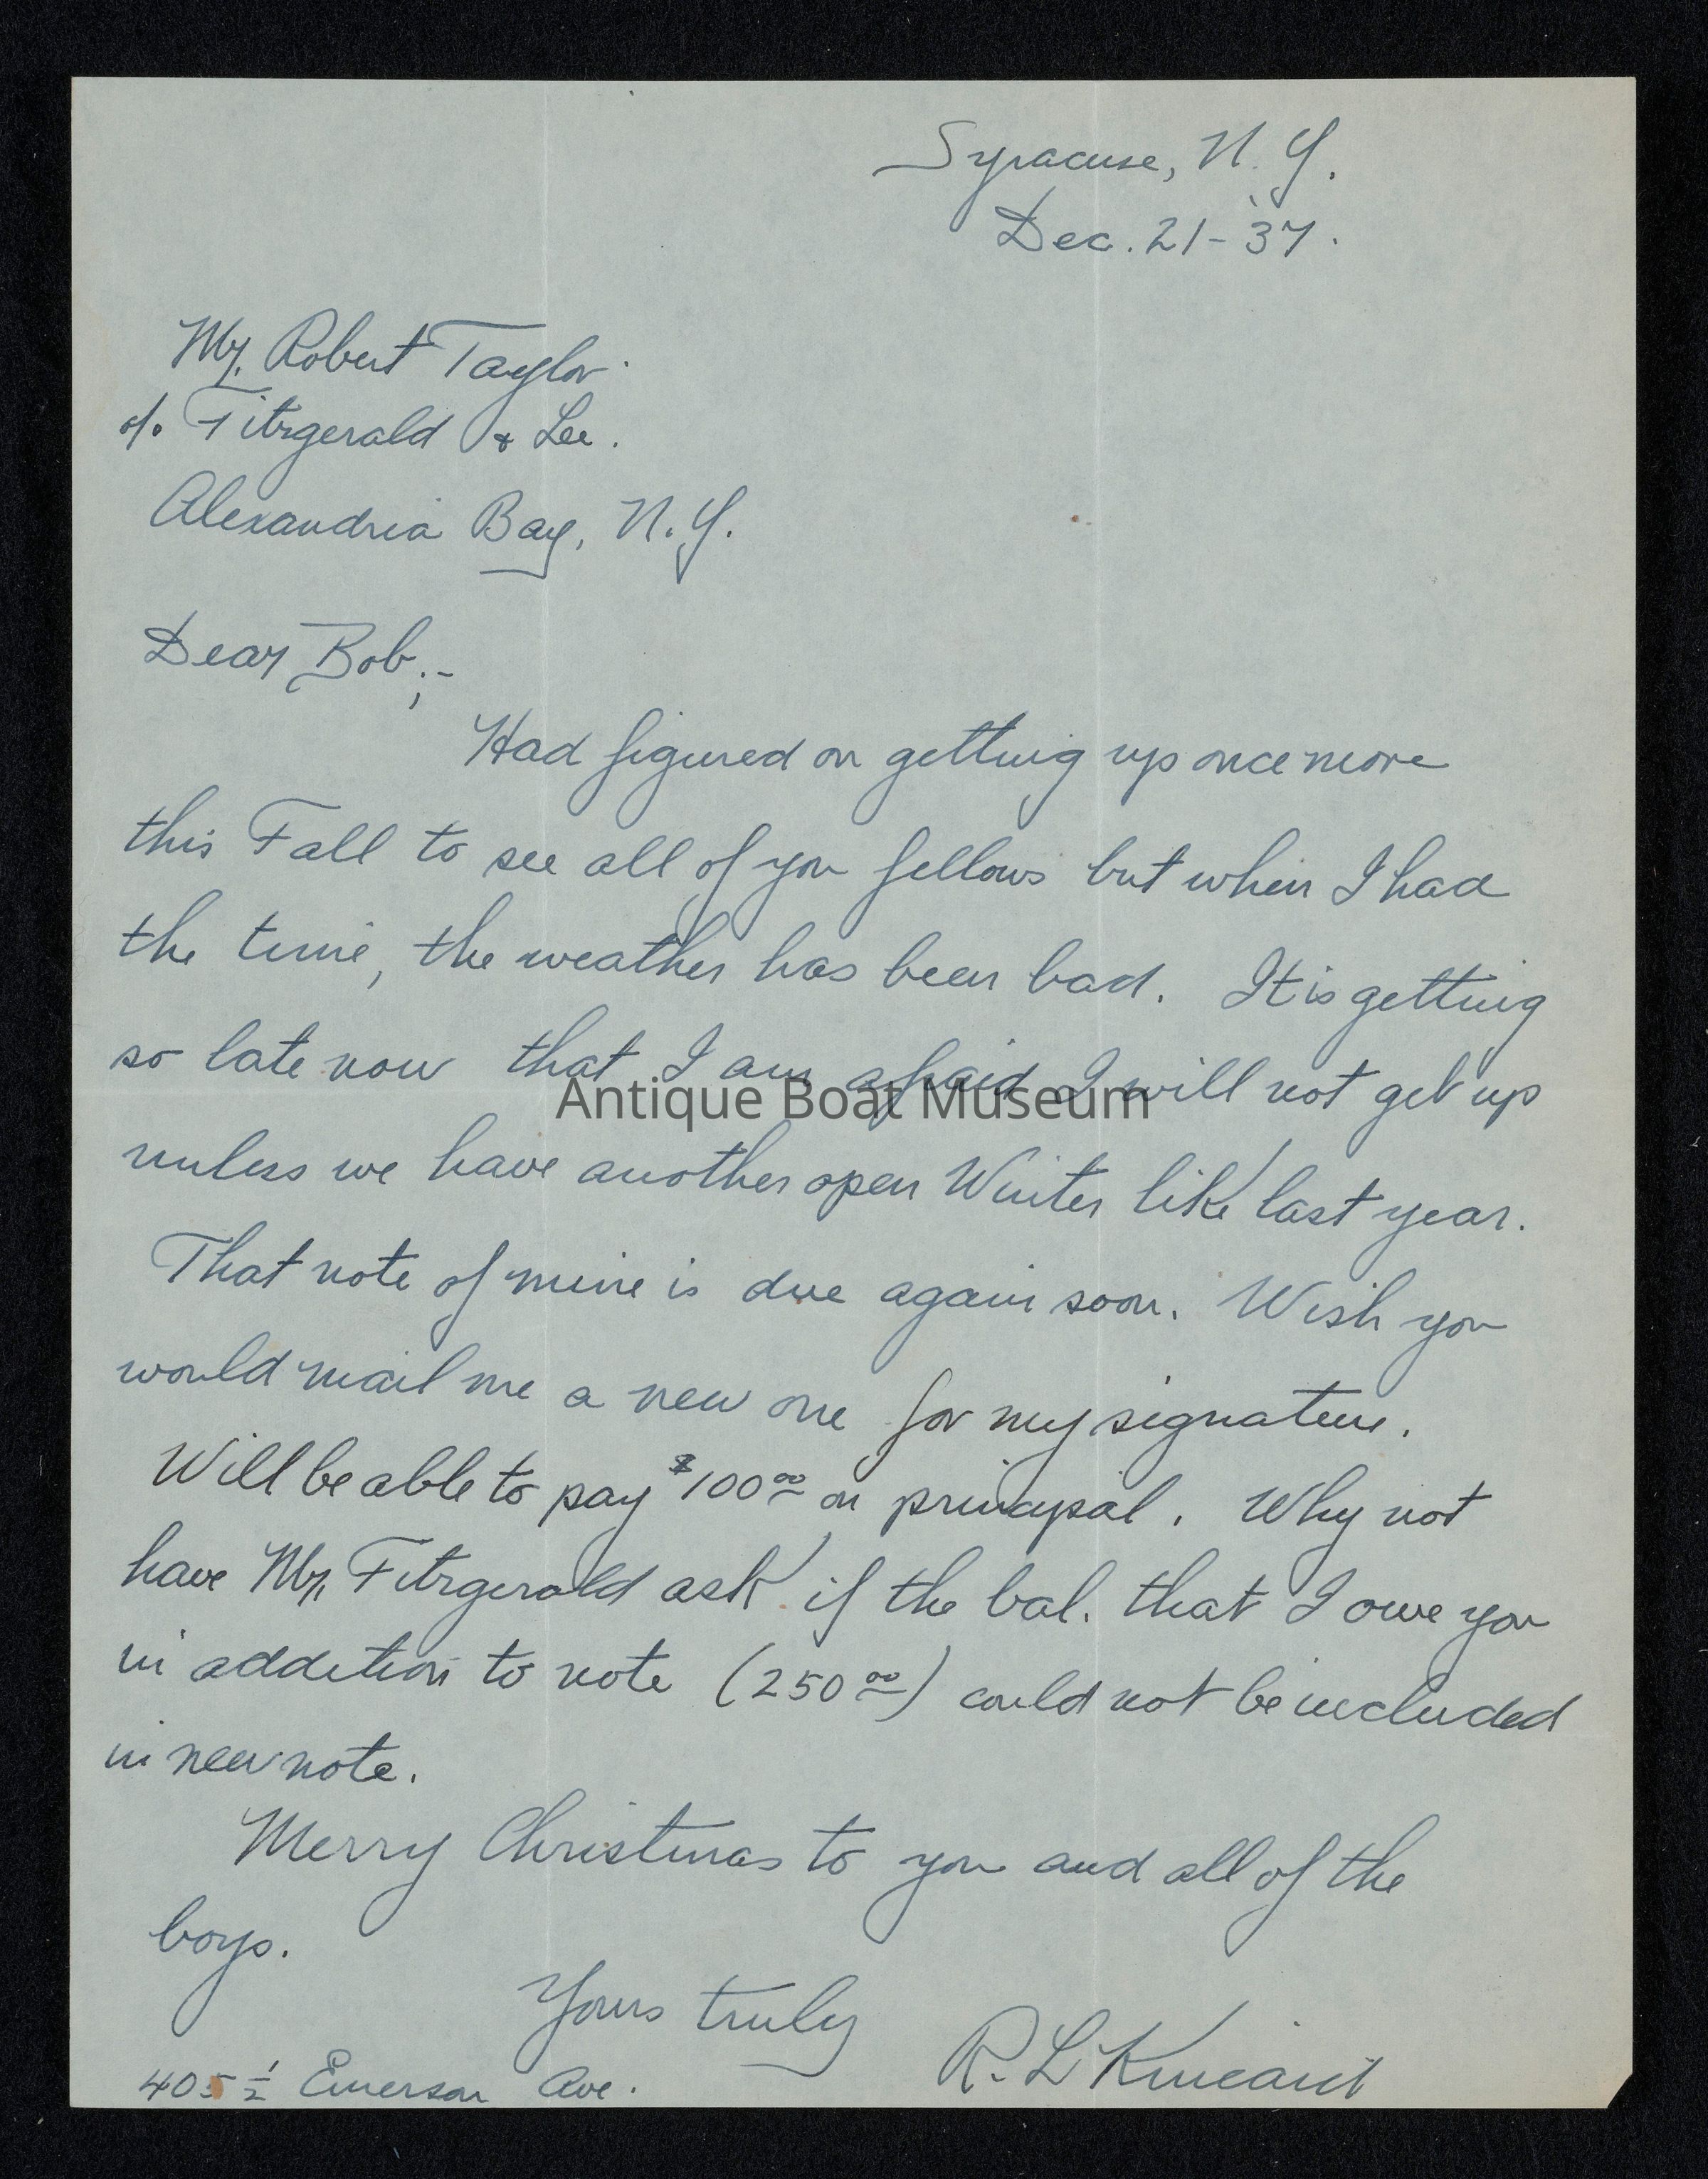 Syracuse, N.Y.
Dec. 21-'37.
Mr. Robert Taylor.
c/o Fitzgerald & Lee.
Alexandria Bay, N.Y.
Dear Bob;-
Had figured on getting up once more
this Fall to see all of you fellows but when I had
the time, the weather has been bad. It is getting
so late now that I am afraid I will not get up
Antique Boat Museum
unless we have another open Winter like last year.
That note of mine is due again soon. Wish you
would mail me a new one for my signature.
Will be able to pay $100.00 on principal. Why not
have Mr. Fitzgerald ask if the bal. that I owe you
in addition to note (250.00) could not be included
in new note.
Merry Christmas to you and all of the
boys.
Yours truly
R. L Kincaid
405 1/2 Emerson Ave.